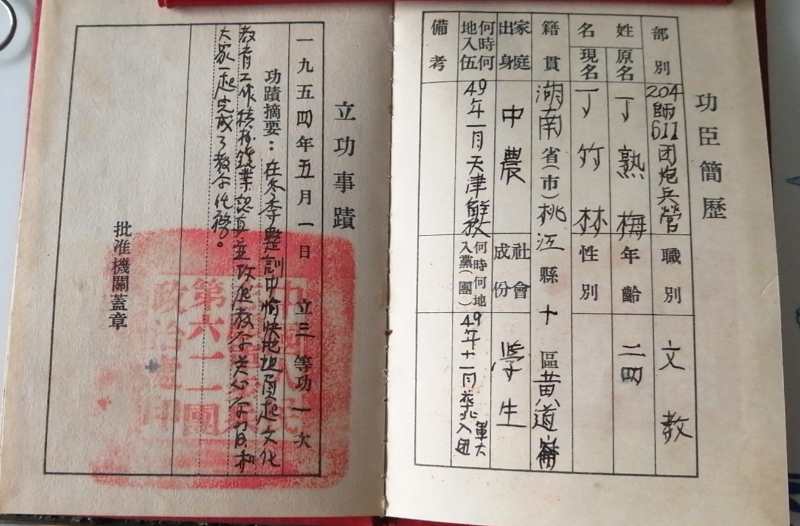 功臣簡歷
部別 204師611团炮兵營 職別 文教
姓名 原名 丁熟梅 年齡 二四
現名 丁竹林 性別
籍貫 湖南省(市)桃江縣十區黄道
家庭出身 中農 社會成份 學生
何時何地入伍 49年一月天津解放 何時何地入黨(團) 49年十一月 華北軍大入团
備考
立功事蹟
一九五四年五月一日 立三等功一次
功蹟摘要:在冬季整訓中愉快地担負起文化
教育工作積极
大家一起完成了教学任務。
批准機關蓋章
中國人民
第六一一團
政治處印